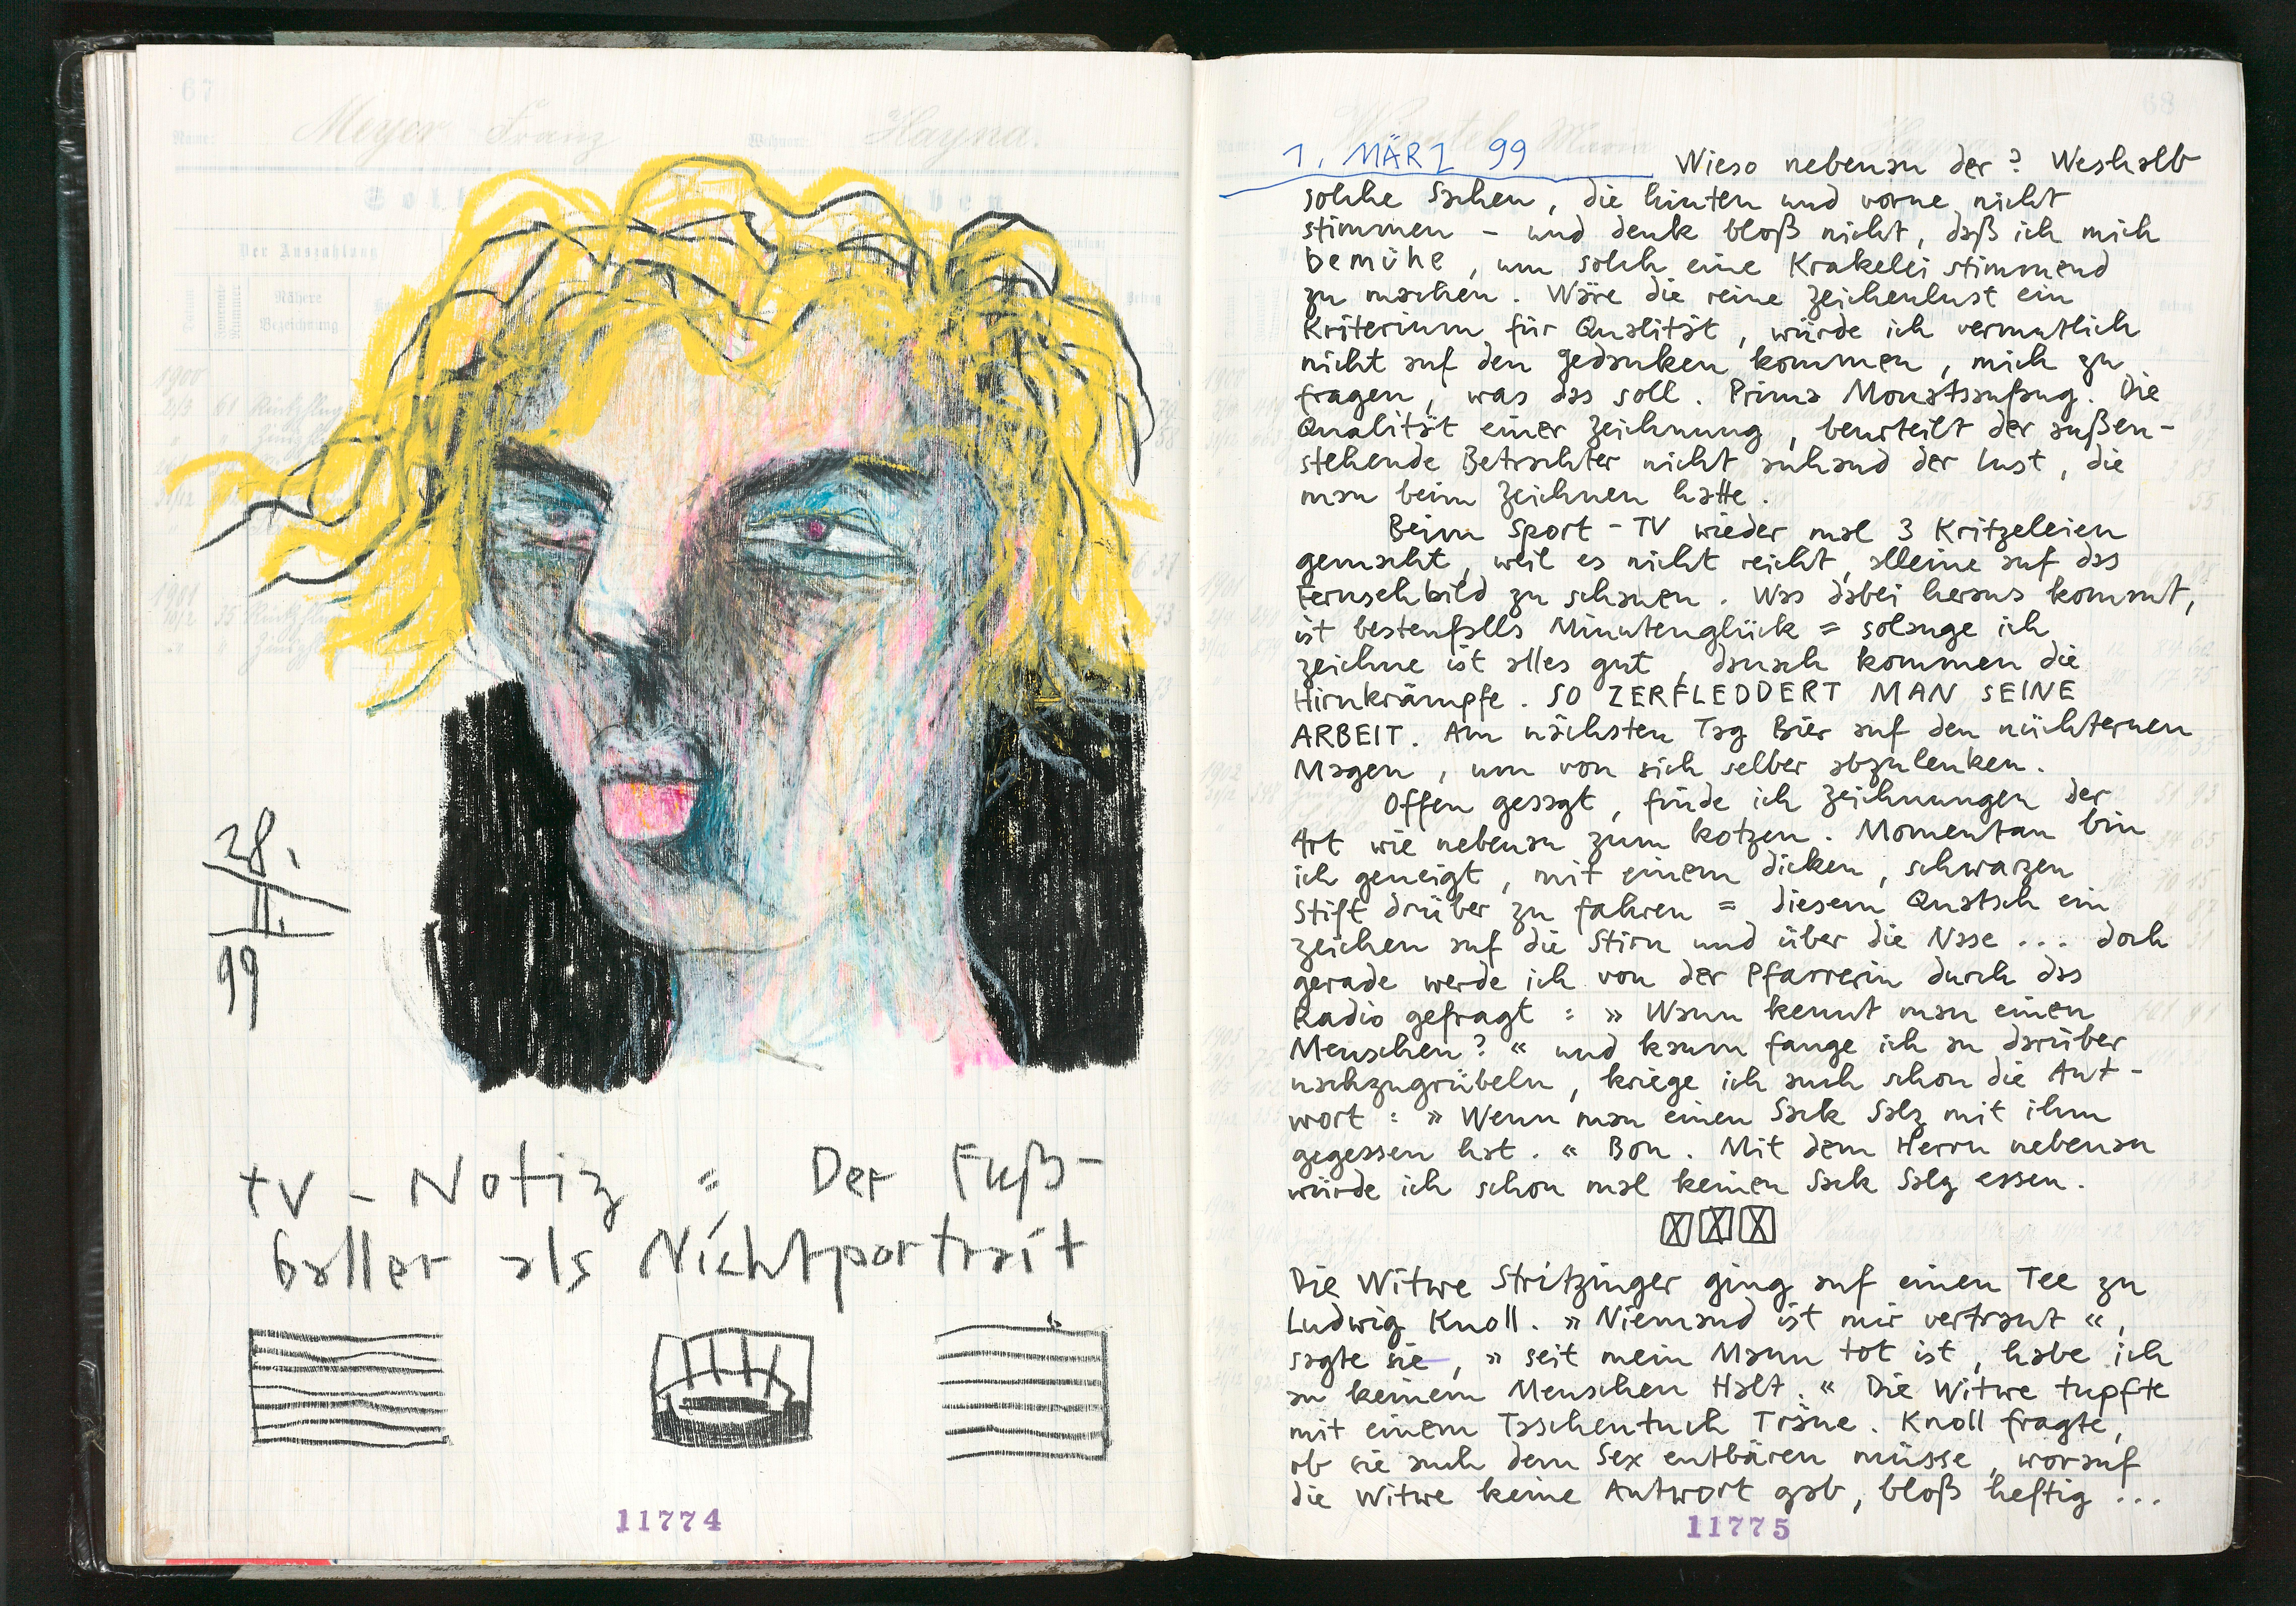 67
Meyer Franz
Hayna.
Soll
Der Auszahlung
Nähere
Bezeichnung
1900
1901
28.
II.
99
TV - Notiz = Der Fuß-
baller als Nichtportrait
11774
68
1. MÄRZ 99 Wieso nebenan der? Weshalb
solche Sachen, die hinten und vorne nicht
stimmen - und denk bloß nicht, daß ich mich
bemühe, um solch eine Krakelei stimmend
zu machen. Wäre die reine Zeichenlust ein
Kriterium für Qualität, würde ich vermutlich
nicht auf den Gedanken kommen, mich zu
fragen, was das soll. Prima Monatsanfang. Die
Qualität einer Zeichnung, beurteilt der außen-
stehende Betrachter nicht anhand der Lust, die
man beim Zeichnen hatte.
Beim Sport-TV wieder mal 3 Kritzeleien
gemacht, weil es nicht reicht, alleine auf das
Fernsehbild zu schauen. Was dabei heraus kommt,
ist bestenfalls Minutenglück = solange ich
zeichne ist alles gut, danach kommen die
Hirnkrämpfe. SO ZERFLEDDERT MAN SEINE
ARBEIT. Am nächsten Tag Bier auf den nüchternen
Magen, um von sich selber abzulenken.
Offen gesagt, finde ich Zeichnungen der
Art wie nebenan zum kotzen. Momentan bin
ich geneigt, mit einem dicken, schwarzen
Stift drüber zu fahren = diesem Quatsch ein
Zeichen auf die Stirn und über die Nase ... doch
gerade werde ich von der Pfarrerin durch das
Radio gefragt : » Wann kennt man einen
Menschen? « und kaum fange ich an darüber
nachzugrübeln, kriege ich auch schon die Ant-
wort : » Wenn man einen Sack Salz mit ihm
gegessen hat. « Bon. Mit dem Herrn nebenan
würde ich schon mal keinen Sack Salz essen.
Die Witwe Stritzinger ging auf einen Tee zu
Ludwig Knoll. » Niemand ist mir vertraut «,
sagte sie, » seit mein Mann tot ist, habe ich
an keinem Menschen Halt. « Die Witwe tupfte
mit einem Taschentuch Träne. Knoll fragte,
ob sie auch dem Sex entbären müsse, worauf
die Witwe keine Antwort gab, bloß heftig ...
11775